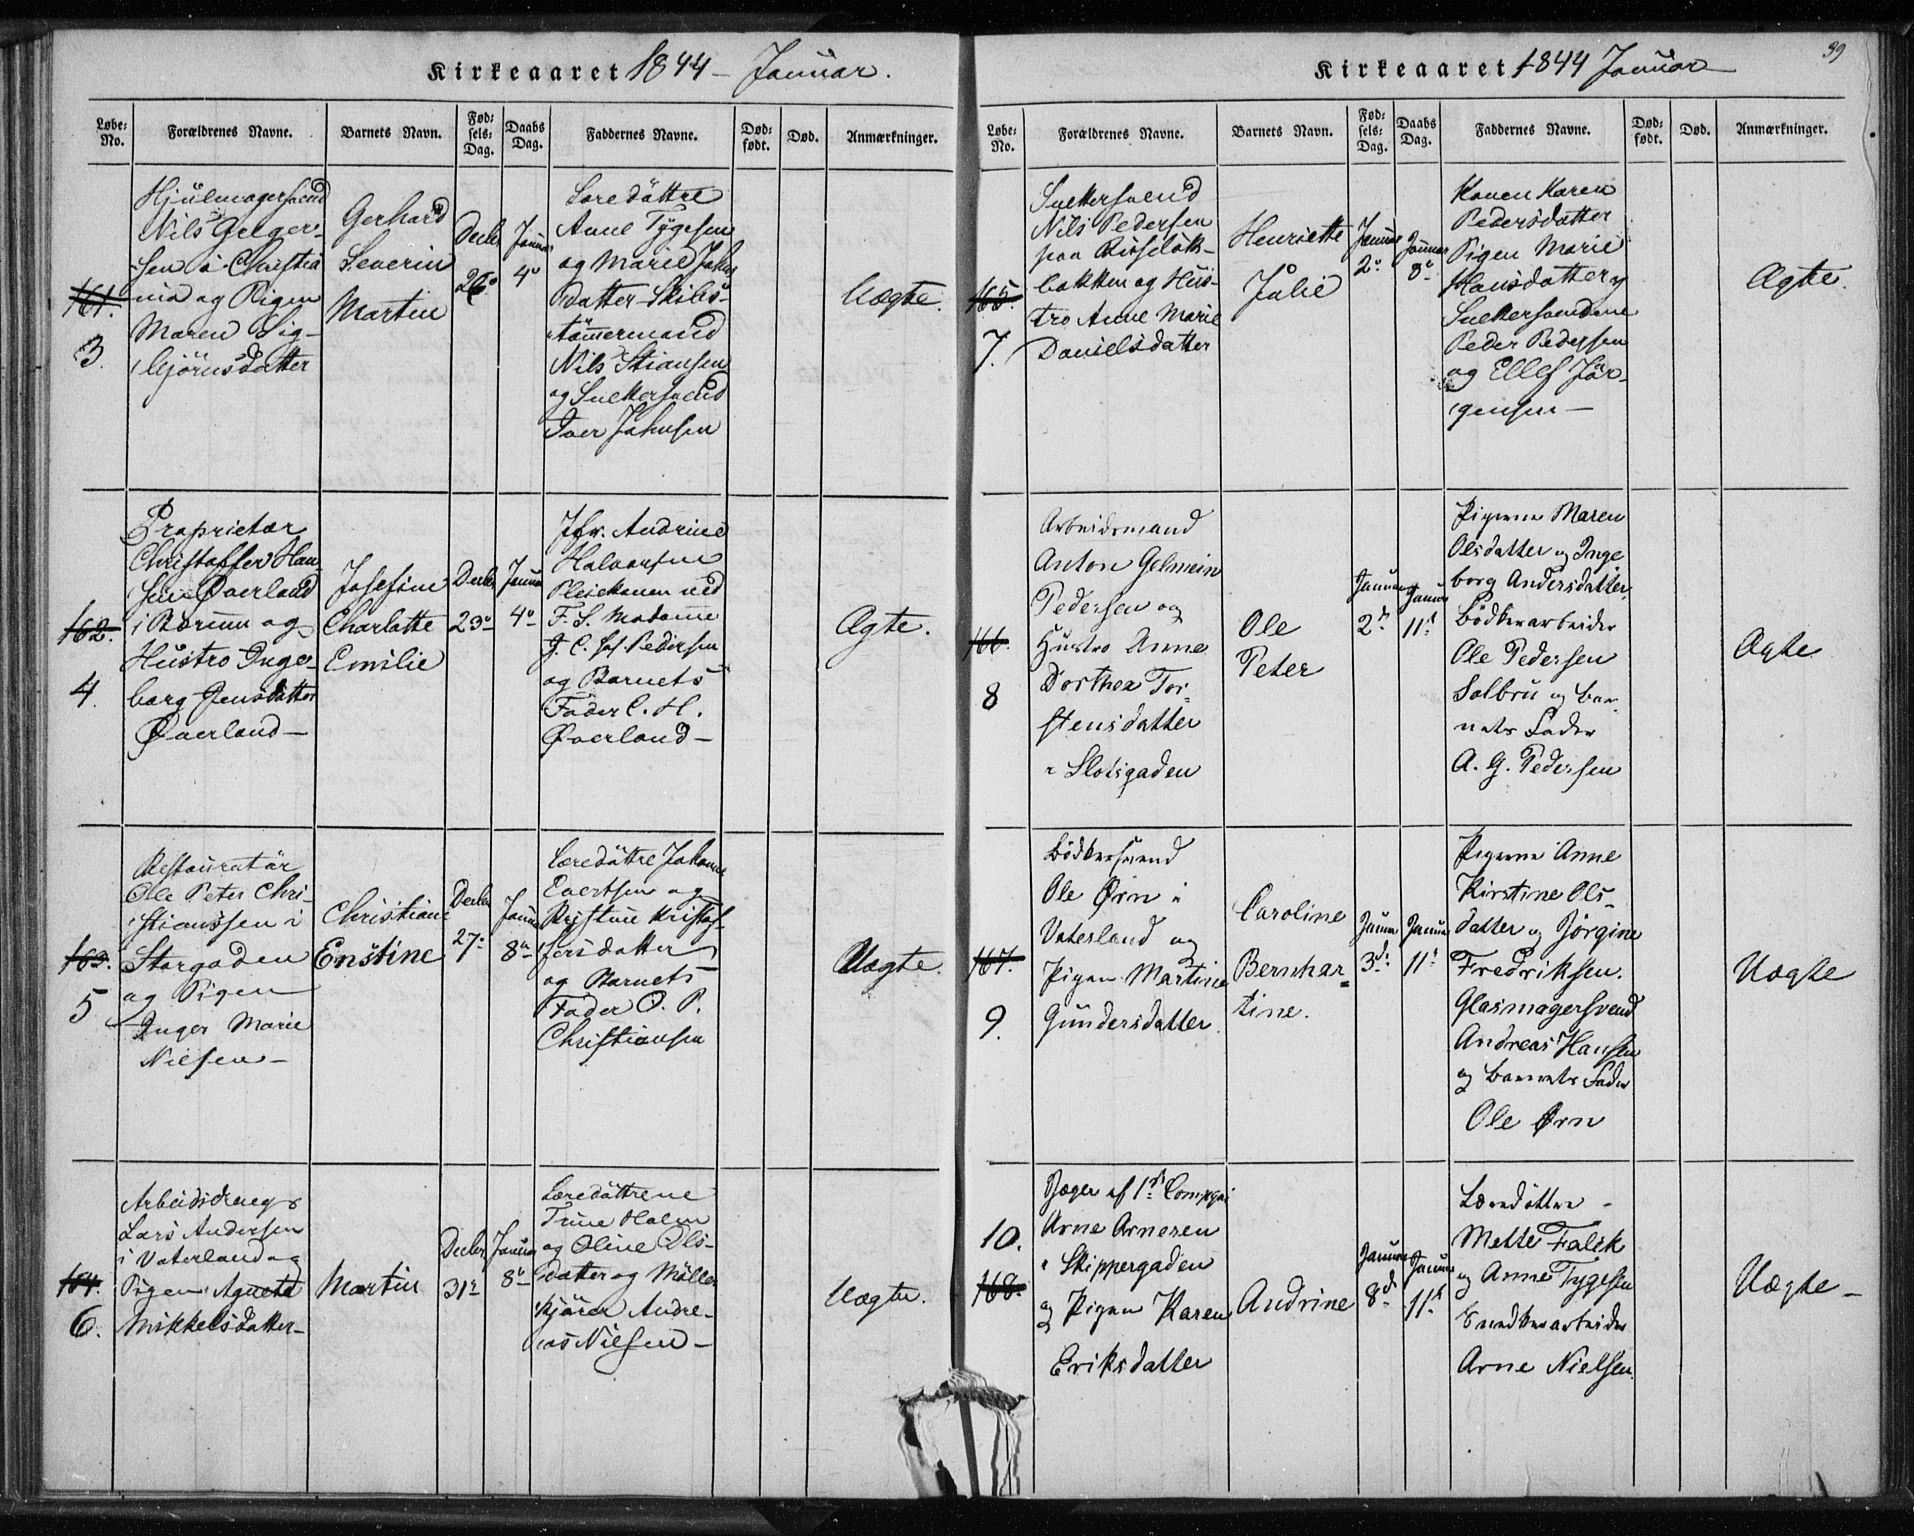 Kirkeaaret 1844 – Januar.
Løbe: No.
Forældrenes Navne.
Barnets Navn.
Fød: sels: Dag.
Daabs Dag.
Faddernes Navne.
Død: født.
Død.
Anmærkninger.
161.
3.
Hjülmagersvend
Nils Gelger-
sen i Christia
nia og Pigen
Maren Sig-
björnsdatter
Gerhard
Severin
Martin
Decbr
26
Januar
4
Loredöttre
Anne Tygesen
og Marie Johns
datter Skibs-
tömmermand
Nils Stiansen
og Snekkersvend
Iver Johnsen
Uægte.
162.
4.
Proprietær
Christoffer Han
sen Øverland
i Bærum og
Hustro Inge-
borg Jensdatter
Øverland –
Josefine
Charlotte
Emilie
Decbr
23
Januar
4
Jfr. Andrine
Halvorsen
Pleiekonen ved
F. S. Madame
J. C. Pedersen
og Barnets
Fader C. H.
Øverland –
Ægte.
163.
5
Restauratör
Ole Peter Chri-
stianssen i
Storgaden
og Pigen
Inger Marie
Nielsen –
Christiane
Enstine
Decbr
27
Januar
8
Læredöttre Johanne
Evertsen og
Kristine Kristof-
fersdatter
og Barnets
Fader O. P.
Christiansen
Uægte.
164.
6.
Arbeidsdreng
Lars Andersen
i Vaterland og
Pigen Agnethe
Mikkelsdatter –
Martin
Decbr
31
Januar
8
Læredöttrene
Trine Holm
og Oline Ols-
datter og Mölle
kjörer Andre-
as Nielsen –
Uægte.
Kirkeaaret 1844 Januar
99
Løbe: No.
Forældrenes Navne.
Barnets Navn.
Fød: sels: Dag.
Daabs Dag.
Faddernes Navne.
Død: født.
Død.
Anmærkninger.
165.
7.
Snekkersvend
Nils Pedersen
paa Ruselök-
bakken og Hus-
tro Anne Marie
Danielsdatter
Henriette
Julie
Januar
2
Januar
8
Konen Karen
Pedersdatter
Pigen Marie
Hansdatter og
Snekkersvendene
Peder Pedersen
og Ellef Jör-
gensen –
Ægte.
166.
8
Arbeidsmand
Anton Gelmein
Pedersen og
Hustro Anne
Dorthea Tor-
stensdatter
i Slotsgaden
Ole
Peter
Januar
2
Januar
11
Pigerne Maren
Olsdatter og Inge
borg Andersdatter,
Bödkerarbeider
Ole Pedersen
Solbru og Bar-
nets Fader
A. G. Pedersen
Ægte
167.
9.
Bödkersvend
Ole Ørn i
Vaterland og
Pigen Martine
Gundersdatter.
Caroline
Bernhar=
tine.
Januar
3
Januar
11
Pigerne Anne
Kirstine Ols-
datter og Jörgine
Fredriksen.
Glasmagersvend
Andreas Hansen
og Barnets Fader
Ole Ørn
Uægte
10.
168.
Jæger af 1ste Compgni
Arne Arnesen
i Skippergaden
og Pigen Karen
Eriksdatter
Andrine
Januar
8
Januar
11
Læredöttre –
Mette Falck
og Anne Tygesen
Snedkerarbeider
Arne Nielsen
Uægte –